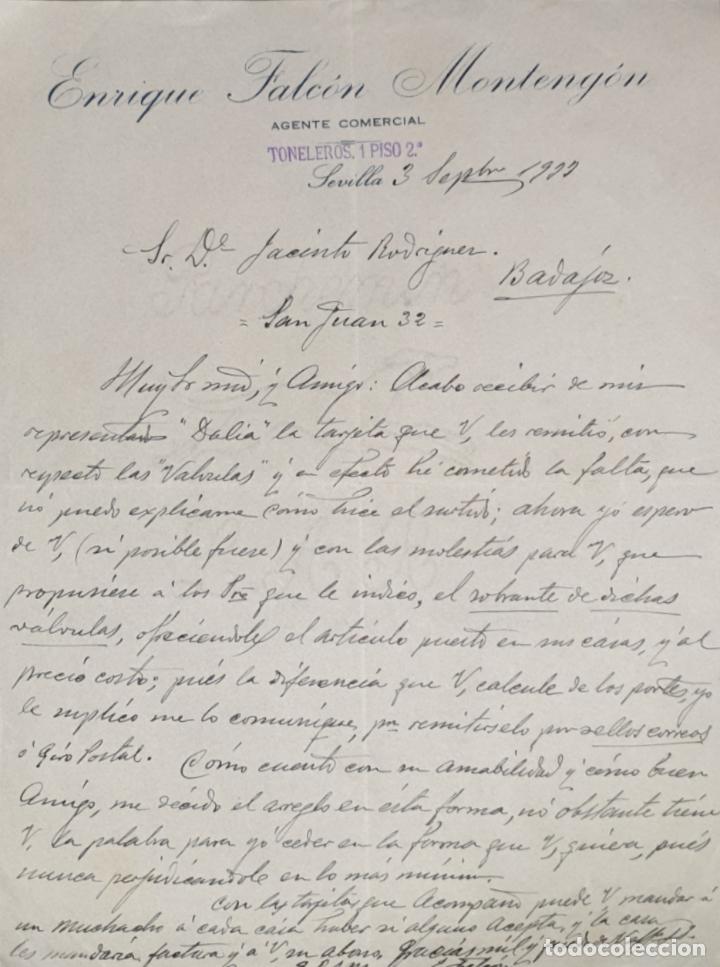 Enrique Falcón Montengón
AGENTE COMERCIAL
TONELEROS, 1 PISO 2.º
Sevilla 3 Septbre 1922
Sr. Dn. Jacinto Rodriguez.
Badajoz.
= San Juan 32 =
Muy Sr mio, y Amigo: Acabo recibir de mis
representados "Dalia" la tarjeta que V, les remitió, con
respecto las "Valvulas" y en efecto hé cometido la falta, que
nó puedo explicarme cómo hice el surtido; ahora yó espero
de V, (si posible fuese) y con las molestias para V, que
propusiese á los Sres que le indico, el sobrante de dichas
válvulas, ofreciendoles el artículo puesto en sus casas, y al
precio costo; pués la diferencia que V, calcule de los portes, yo
le suplico me lo comunique, pra remitirselo por sellos correos
ó Giro Postal. Cómo cuento con su amabilidad y cómo buen
Amigo, me decido el arreglo en ésta forma, nó obstante tiene
V, la palabra para yó ceder en la forma que V, quiera, pués
nunca perjudicandole en lo más minimo.
Con las tarjetas que Acompaño puede V, mandar á
un muchacho á cada casa haber si alguno Acepta, y la casa
les mandaria factura y á V, su abono. Gracias mil y
todocoleccion